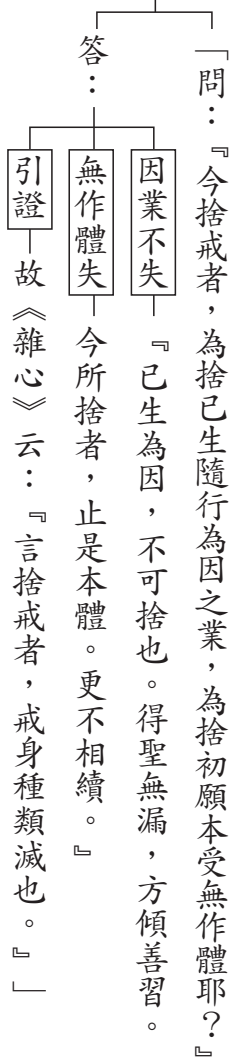 「問：『今捨戒者，為捨已生隨行為因之業，為捨初願本受無作體耶？』
答：
因業不失
『已生為因，不可捨也。得聖無漏，方傾善習。
無作體失
今所捨者，止是本體。更不相續。』
引證
故《雜心》云：『言捨戒者，戒身種類滅也。』」